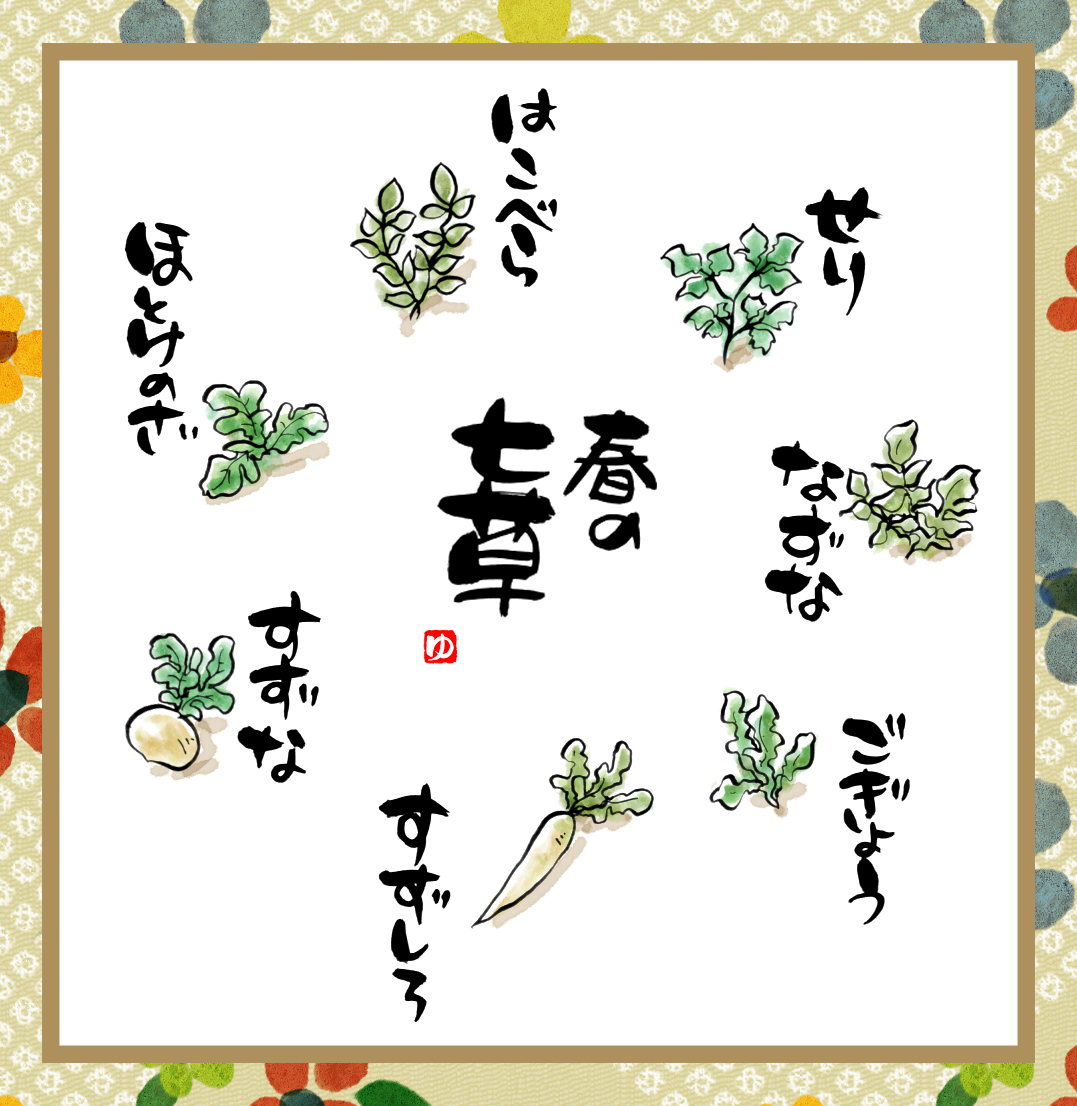 春の
七草
せり
なずな
ごぎょう
はこべら
ほとけのざ
すずな
すずしろ
ゆ